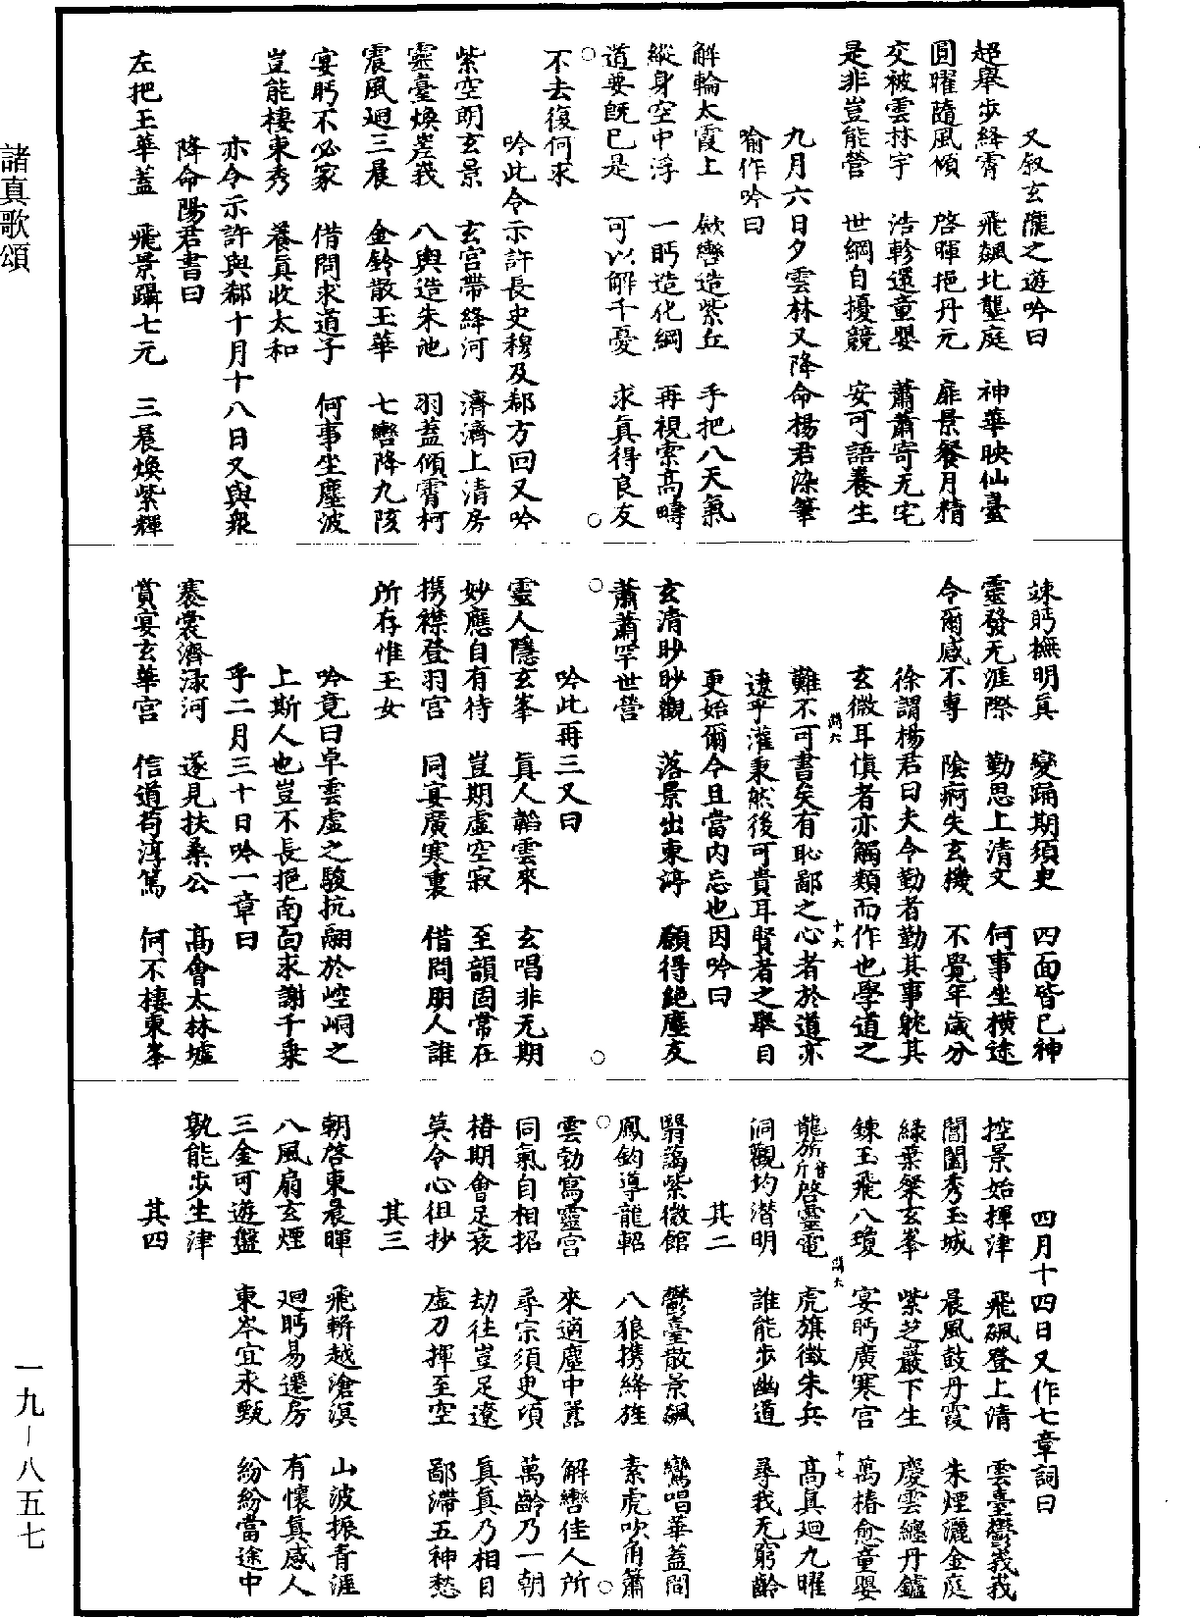 諸真歌頌
一九—八五七
又敘玄隴之遊吟曰
超舉步絳霄　飛飆北壟庭　神華映仙臺
圓曜隨風傾　啓暉挹丹元　扉景餐月精
交被雲林宇　浩軫還童嬰　蕭蕭寄无宅
是非豈能營　世網自擾競　安可語養生
九月六日夕雲林又降命楊君染筆
喻作吟曰
解輪太霞上　歘轡造紫丘　手把八天氣
縱身空中浮　一眄造化綱　再視索高疇
道要既已是　可以解千憂　求真得良友
不去復何求
吟此令示許長史穆及郗方回又吟
紫空朗玄景　玄宮帶絳河　濟濟上清房
靈臺煥嵳峩　八輿造朱池　羽蓋傾霄柯
震風廻三晨　金鈴散玉華　七轡降九陔
宴眄不必家　借問求道子　何事坐塵波
豈能棲東秀　養真收太和
亦令示許與郗十月十八日又與衆
降命陽君書曰
左把玉華蓋　飛景躡七元　三晨煥紫輝
竦眄撫明真　變踊期須臾　四面皆已神
靈發无涯際　勤思上清文　何事坐横途
令爾感不專　陰痾失玄機　不覺年歲分
徐謂楊君曰夫今勤者勤其事耽其
玄微耳慎者亦觸類而作也學道之
難不可書矣有恥鄙之心者於道亦
遼乎灌秉然後可貴耳賢者之舉自
更始爾今且當內忘也因吟曰
玄清眇眇觀　落景出東渟　願得絶塵友
蕭蕭罕世營
吟此再三又曰
靈人隱玄峯　真人韜雲來　玄唱非无期
妙應自有待　豈期虛空寂　至韻固常在
携襟登羽宮　同宴廣寒裏　借問朋人誰
所存惟玉女
吟竟曰卓雲虛之駿抗翮於崆峒之
上斯人也豈不長挹南面求謝千乗
乎二月三十日吟一章曰
褰裳濟淥河　遂見扶桑公　高會太林墟
賞宴玄華宮　信道苟淳篤　何不棲東峯
四月十四日又作七章詞曰
控景始揮津　飛飆登上清　雲臺鬱峩峩
閶闔秀玉城　晨風鼓丹霞　朱煙灑金庭
綠蘂粲玄峯　紫芝巖下生　慶雲纏丹鑪
鍊玉飛八瓊　宴眄廣寒宮　萬椿愈童嬰
龍旂音斤啓靈電　虎旗徵朱兵　高真廻九曜
洞觀均潛明　誰能步幽道　尋我无窮齡
其二
翳藹紫微館　鬱臺散景飆　鸞唱華蓋間
鳳鈞導龍軺　八狼携絳旌　素虎吹角簫
雲勃寫靈宮　來適塵中囂　解轡佳人所
同氣自相招　尋宗須臾頃　萬齡乃一朝
椿期會足衰　劫往豈足遼　真真乃相目
莫令心徂抄　虛刀揮至空　鄙滯五神愁
其三
朝啓東晨暉　飛輧越滄溟　山波振青涯
八風扇玄煙　廻眄易遷房　有懷真感人
三金可遊盤　東岑宜永甄　紛紛當途中
孰能步生津
其四